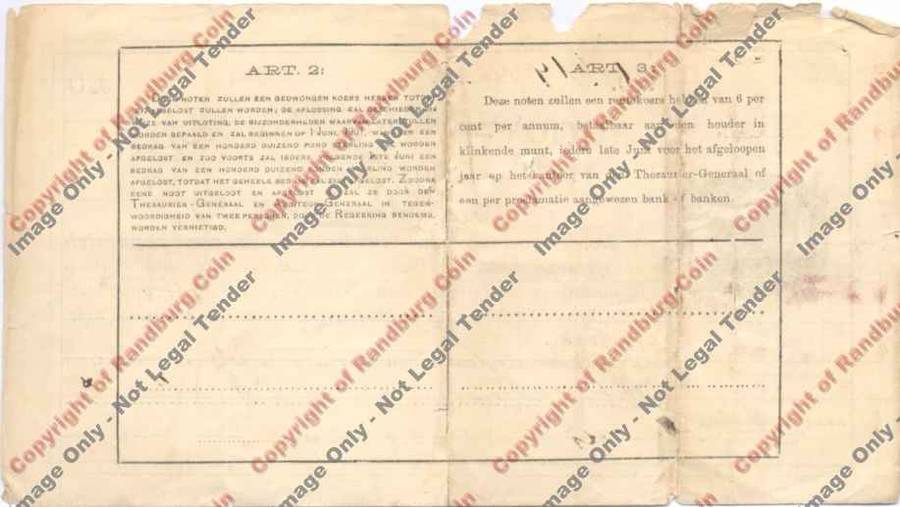 ART. 2:
NOTEN ZULLEN EEN GEDWONGEN KOERS HEBBEN TOTDAT
AFGELOST ZULLEN WORDEN; DE AFLOSSING ZAL GESCHIEDEN
VAN UITLOTING, DE BIJZONDERHEDEN WAARVAN LATER ZULLEN
WORDEN BEPAALD EN ZAL BEGINNEN OP 1 JUNI, 1901, EEN
BEDRAG VAN EEN HONDERD DUIZEND POND STERLING WORDEN
AFGELOST EN ZOO VOORTS ZAL IEDERE 1STE JUNI EEN
BEDRAG VAN EEN HONDERD DUIZEND STERLING WORDEN
AFGELOST, TOTDAT HET GEHEELE
EENE NOOT UITGELOOT EN ZAL ZE DOOR DEN
THESAURIER-GENERAAL EN GENERAAL IN TEGEN-
WOORDIGHEID VAN TWEE PERSONEN, DOOR DE REGEERING BENOEMD,
WORDEN VERNIETIGD.
ART. 3:
Deze noten zullen een rentekoers hebben van 6 per
cent per annum, betaalbaar aan den houder in
klinkende munt, iedere 1ste Juni voor het afgeloopen
jaar op het kantoor van den Thesaurier-Generaal of
een per proclamatie aangewezen bank of banken.
Copyright of Randburg Coin
Image Only - Not Legal Tender